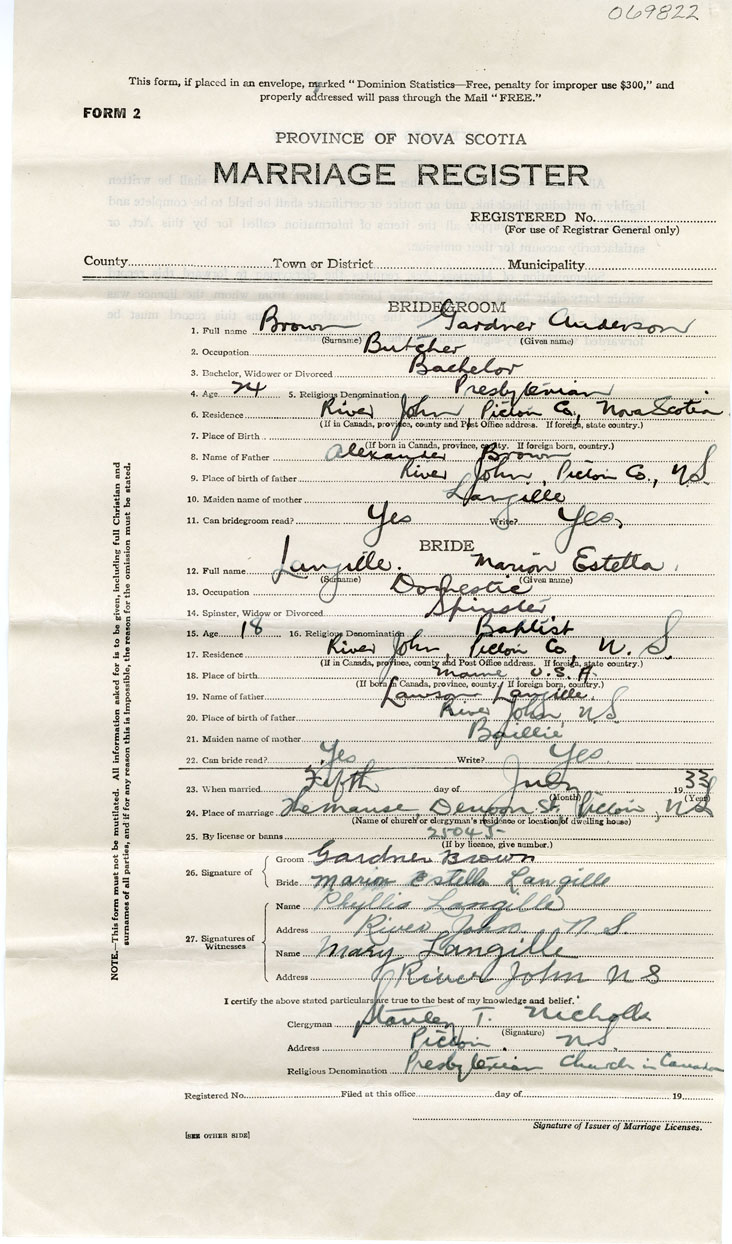 069822
This form, if placed in an envelope, marked "Dominion Statistics—Free, penalty for improper use $300," and
properly addressed will pass through the Mail "FREE."
FORM 2
PROVINCE OF NOVA SCOTIA
MARRIAGE REGISTER
REGISTERED No.
(For use of Registrar General only)
County Town or District Municipality
BRIDEGROOM
1. Full name Brown Gardner Anderson
(Surname) (Given name)
2. Occupation Butcher
3. Bachelor, Widower or Divorced Bachelor
4. Age 24 5. Religious Denomination Presbyterian
6. Residence River John, Pictou Co., Nova Scotia
(If in Canada, province, county and Post Office address. If foreign, state country.)
7. Place of Birth
(If born in Canada, province, county. If foreign born, country.)
8. Name of Father Alexander Brown
9. Place of birth of father River John, Pictou Co., N.S.
10. Maiden name of mother Langille
11. Can bridegroom read? Yes Write? Yes,
BRIDE
12. Full name Langille. Marion Estella.
(Surname) (Given name)
13. Occupation Domestic
14. Spinster, Widow or Divorced Spinster
15. Age 18 16. Religious Denomination Baptist
17. Residence River John, Pictou Co, N. S.
(If in Canada, province, county and Post Office address. If foreign, state country.)
18. Place of birth Maine, U.S.A.
(If born in Canada, province, county. If foreign born, country.)
19. Name of father Lawson Langille.
20. Place of birth of father River John, N S
21. Maiden name of mother Baillie
22. Can bride read? Yes Write? Yes
23. When married Fifth day of July 1933
(Month) (Year)
24. Place of marriage The manse, Denoon St, Pictou, N.S
(Name of church or clergyman's residence or location of dwelling house)
25. By license or banns 25045-
(If by licence, give number.)
26. Signature of
Groom Gardner Brown
Bride Marion Estella Langille
27. Signatures of Witnesses
Name Phyllis Langille
Address River John N.S.
Name Mary Langille
Address River John N S
I certify the above stated particulars are true to the best of my knowledge and belief.
Clergyman Stanley T. Nicholls
(Signature)
Address Pictou. N.S.
Religious Denomination Presbyterian Church in Canada
Registered No. Filed at this office day of 19
Signature of Issuer of Marriage Licenses.
[SEE OTHER SIDE]
NOTE.—This form must not be mutilated. All information asked for is to be given, including full Christian and
surnames of all parties, and if for any reason this is impossible, the reason for the omission must be stated.